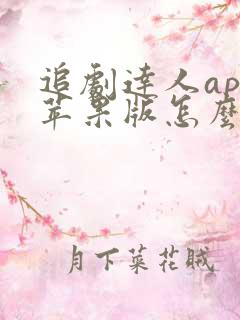 追劇達人ap
苹果版怎麽
月下菜花賊